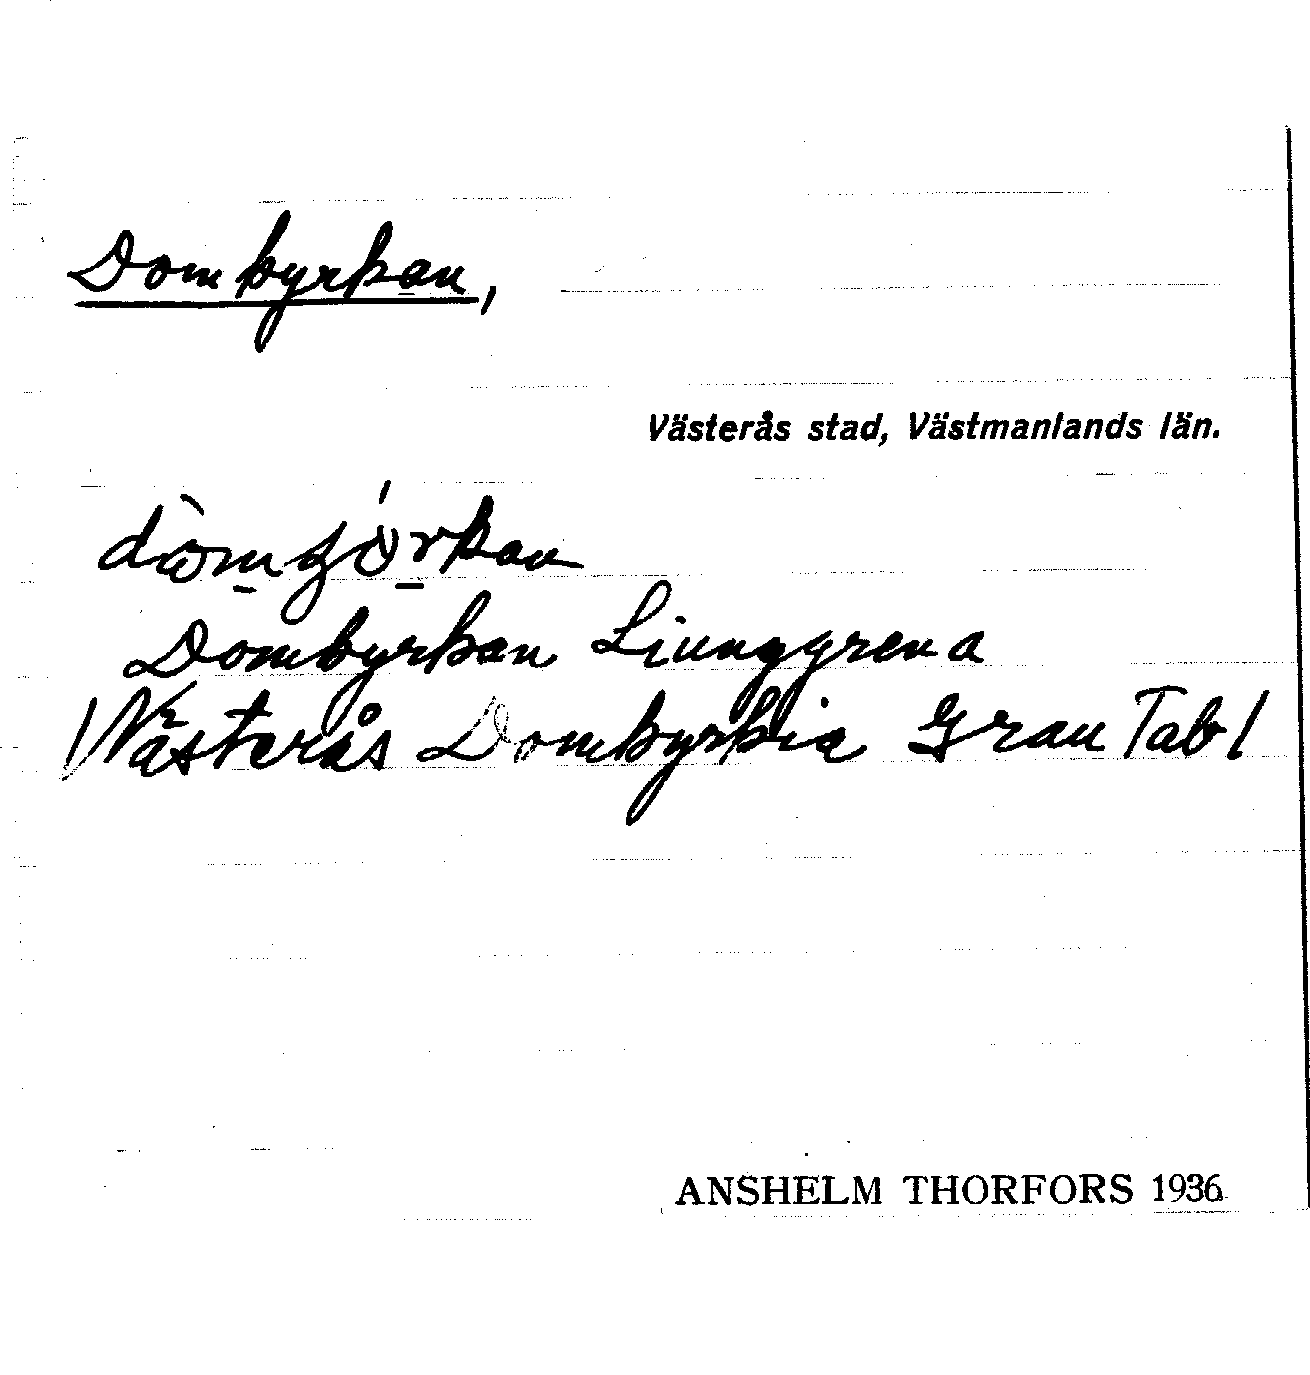 Domkyrkan,
Västerås stad, Västmanlands län.
Domkyrkan Ljunggren a
Västerås Domkyrkia Grau Tab 1
ANSHELM THORFORS 1936